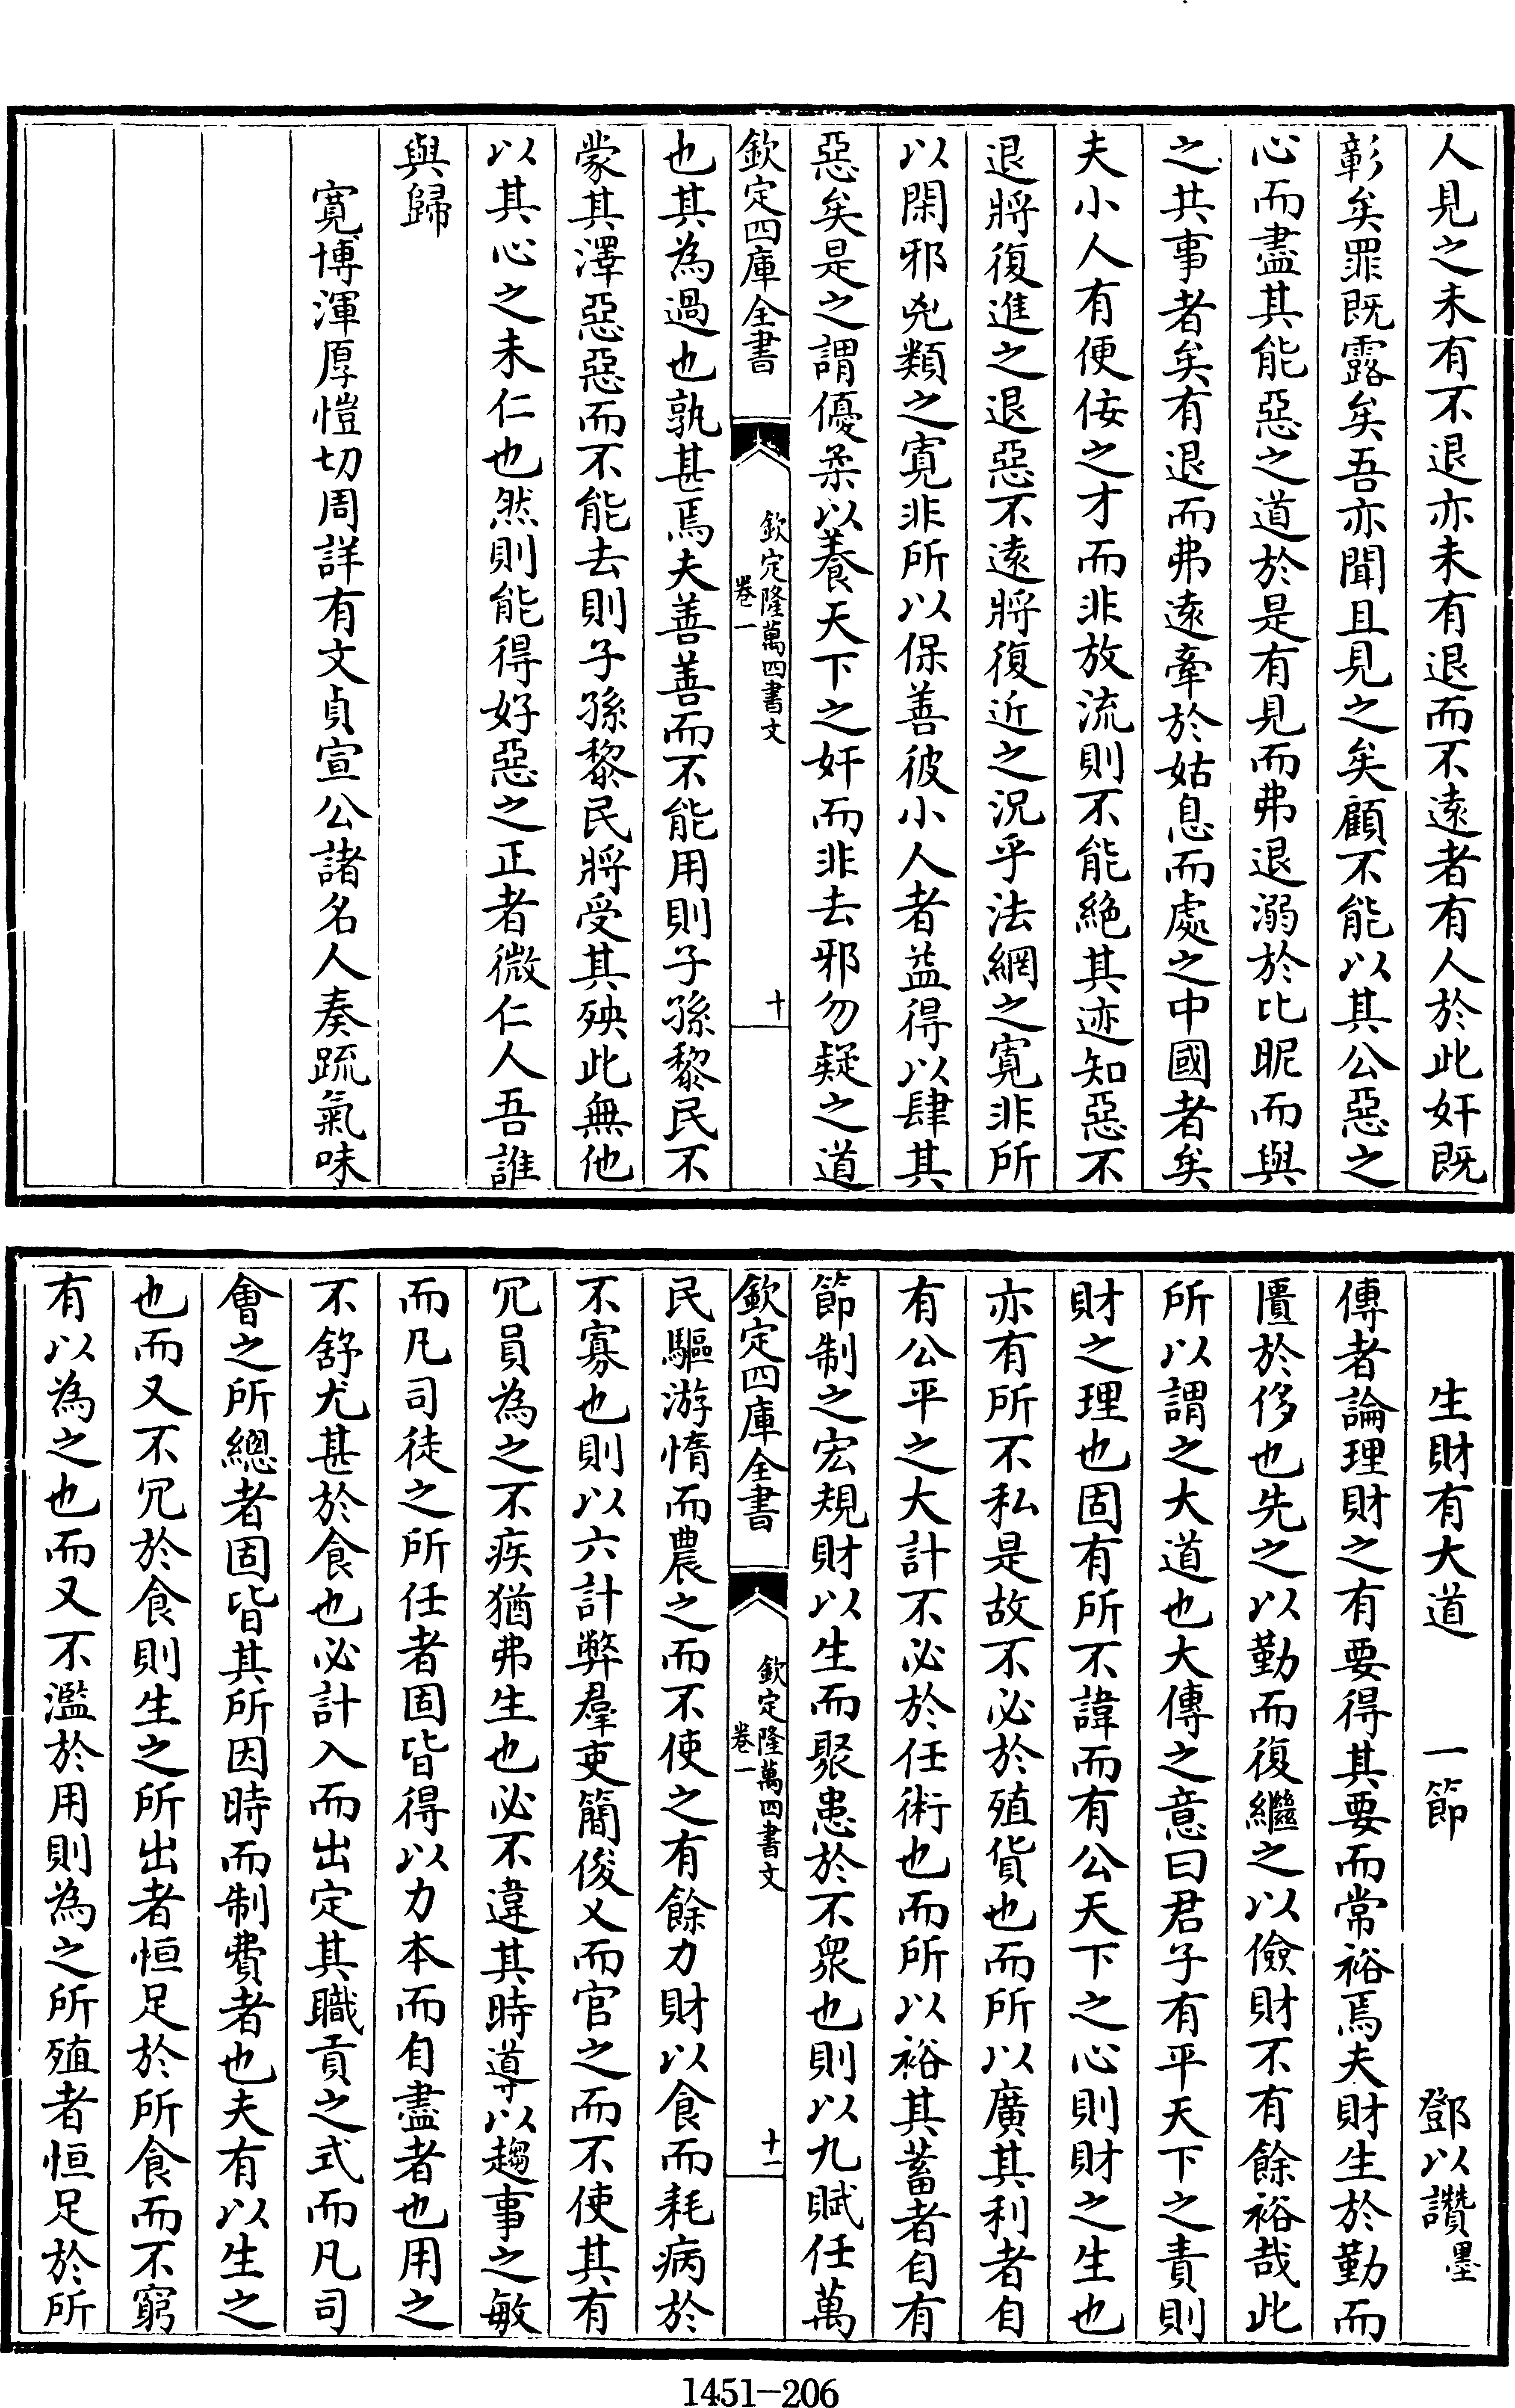 人見之未有不退亦未有退而不遠者有人於此奸既
彰矣罪既露矣吾亦聞且見之矣顧不能以其公惡之
心而盡其能惡之道於是有見而弗退溺於比昵而與
之共事者矣有退而弗遠牽於姑息而處之中國者矣
夫小人有便佞之才而非放流則不能絶其迹知惡不
退將復進之退惡不遠將復近之況乎法網之寛非所
以閑邪兇類之寛非所以保善彼小人者益得以肆其
惡矣是之謂優柔以養天下之奸而非去邪勿疑之道
欽定四庫全書
欽定隆萬四書文
卷一
十
也其為過也孰甚焉夫善善而不能用則子孫黎民不
蒙其澤惡惡而不能去則子孫黎民將受其殃此無他
以其心之未仁也然則能得好惡之正者微仁人吾誰
與歸
寛博渾厚愷切周詳有文貞宣公諸名人奏疏氣味
生財有大道 一節 鄧以讚墨
傳者論理財之有要得其要而常裕焉夫財生於勤而
匱於侈也先之以勤而復繼之以儉財不有餘裕哉此
所以謂之大道也大傳之意曰君子有平天下之責則
財之理也固有所不諱而有公天下之心則財之生也
亦有所不私是故不必於殖貨也而所以廣其利者自
有公平之大計不必於任術也而所以裕其蓄者自有
節制之宏規財以生而聚患於不衆也則以九賦任萬
欽定四庫全書
欽定隆萬四書文
卷一
十一
民驅游惰而農之而不使之有餘力財以食而耗病於
不寡也則以六計弊羣吏簡俊乂而官之而不使其有
冗員為之不疾猶弗生也必不違其時導以趨事之敏
而凡司徒之所任者固皆得以力本而自盡者也用之
不舒尤甚於食也必計入而出定其職貢之式而凡司
會之所總者固皆其所因時而制費者也夫有以生之
也而又不冗於食則生之所出者恒足於所食而不窮
有以為之也而又不濫於用則為之所殖者恒足於所
1451-206